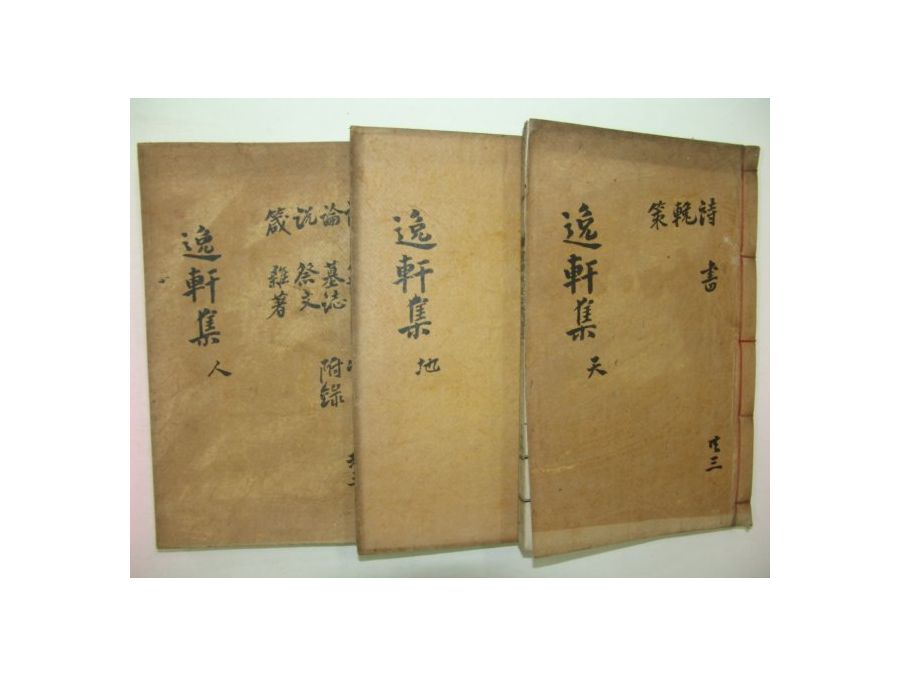 詩 書
輓
策
共三
逸軒集 天
逸軒集 地
附錄
論 墓誌
說 祭文
箴 雜著
逸軒集 人